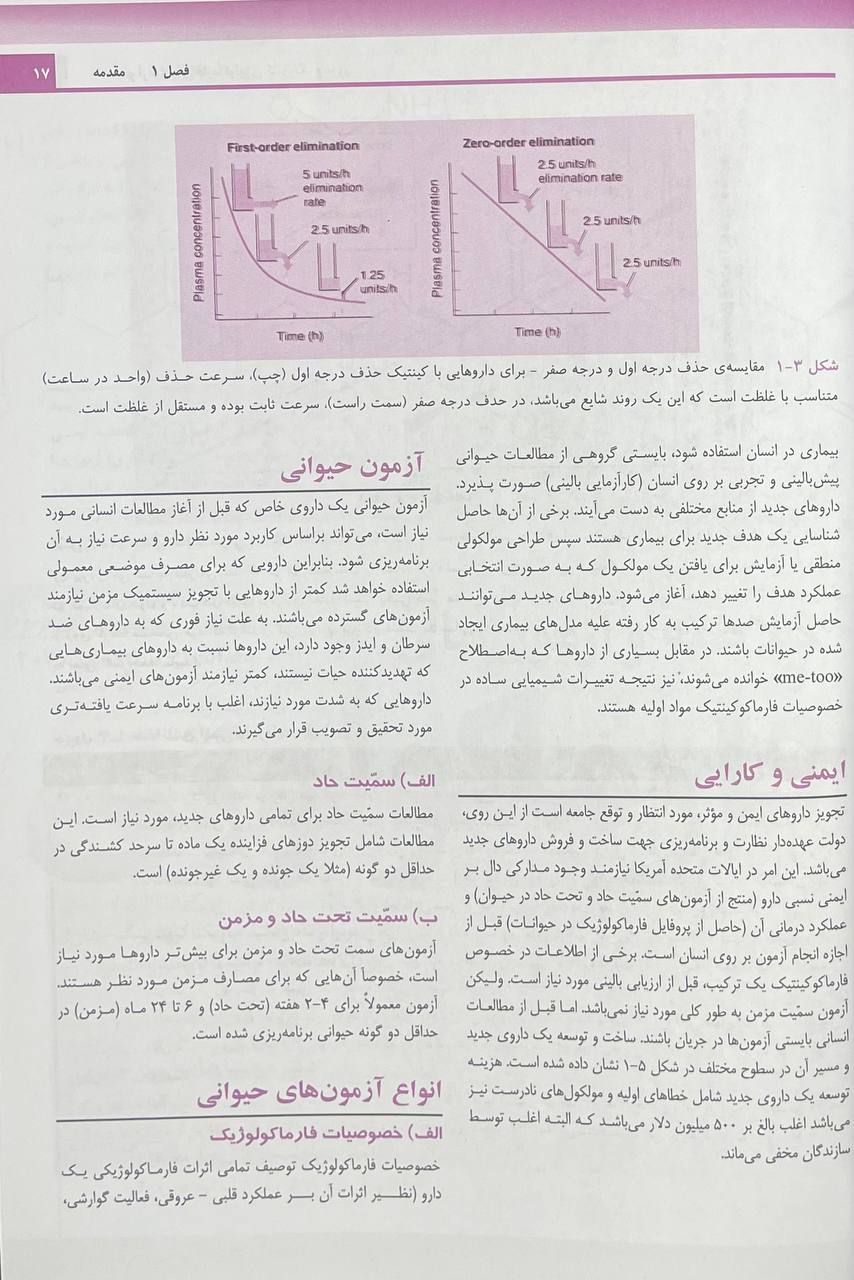 فصل ۱ مقدمه ۱۷
First-order elimination
Plasma concentration
5 units/h
elimination
rate
2.5 units/h
1.25
units/h
Time (h)
Zero-order elimination
Plasma concentration
2.5 units/h
elimination rate
2.5 units/h
2.5 units/h
Time (h)
شکل ۳-۱ مقایسه‌ی حذف درجه اول و درجه صفر - برای داروهایی با کینتیک حذف درجه اول (چپ)، سرعت حذف (واحد در ساعت)
متناسب با غلظت است که این یک روند شایع می‌باشد، در حدف درجه صفر (سمت راست)، سرعت ثابت بوده و مستقل از غلظت است.
بیماری در انسان استفاده شود، بایستی گروهی از مطالعات حیوانی
پیش‌بالینی و تجربی بر روی انسان (کارآزمایی بالینی) صورت پذیرد.
داروهای جدید از منابع مختلفی به دست می‌آیند. برخی از آن‌ها حاصل
شناسایی یک هدف جدید برای بیماری هستند سپس طراحی مولکولی
منطقی یا آزمایش برای یافتن یک مولکول که به صورت انتخابی
عملکرد هدف را تغییر دهد، آغاز می‌شود. داروهای جدید می‌توانند
حاصل آزمایش صدها ترکیب به کار رفته علیه مدل‌های بیماری ایجاد
شده در حیوانات باشند. در مقابل بسیاری از داروها که به‌اصطلاح
«me-too» خوانده می‌شوند، نیز نتیجه تغییرات شیمیایی ساده در
خصوصیات فارماکوکینتیک مواد اولیه هستند.
ایمنی و کارایی
تجویز داروهای ایمن و مؤثر، مورد انتظار و توقع جامعه است از این روی،
دولت عهده‌دار نظارت و برنامه‌ریزی جهت ساخت و فروش داروهای جدید
می‌باشد. این امر در ایالات متحده آمریکا نیازمند وجود مدارکی دال بر
ایمنی نسبی دارو (منتج از آزمون‌های سمّیت حاد و تحت حاد در حیوان) و
عملکرد درمانی آن (حاصل از پروفایل فارماکولوژیک در حیوانات) قبل از
اجازه انجام آزمون بر روی انسان است. برخی از اطلاعات در خصوص
فارماکوکینتیک یک ترکیب، قبل از ارزیابی بالینی مورد نیاز است. ولیکن
آزمون سمّیت مزمن به طور کلی مورد نیاز نمی‌باشد. اما قبل از مطالعات
انسانی بایستی آزمون‌ها در جریان باشند. ساخت و توسعه یک داروی جدید
و مسیر آن در سطوح مختلف در شکل ۵-۱ نشان داده شده است. هزینه
توسعه یک داروی جدید شامل خطاهای اولیه و مولکول‌های نادرست نیز
می‌باشد اغلب بالغ بر ۵۰۰ میلیون دلار می‌باشد که البته اغلب توسط
سازندگان مخفی می‌ماند.
آزمون حیوانی
آزمون حیوانی یک داروی خاص که قبل از آغاز مطالعات انسانی مورد
نیاز است، می‌تواند براساس کاربرد مورد نظر دارو و سرعت نیاز به آن
برنامه‌ریزی شود. بنابراین دارویی که برای مصرف موضعی معمولی
استفاده خواهد شد کمتر از داروهایی با تجویز سیستمیک مزمن نیازمند
آزمون‌های گسترده می‌باشند. به علت نیاز فوری که به داروهای ضد
سرطان و ایدز وجود دارد، این داروها نسبت به داروهای بیماری‌هایی
که تهدیدکننده حیات نیستند، کمتر نیازمند آزمون‌های ایمنی می‌باشند.
داروهایی که به شدت مورد نیازند، اغلب با برنامه سرعت یافته‌تری
مورد تحقیق و تصویب قرار می‌گیرند.
الف) سمّیت حاد
مطالعات سمّیت حاد برای تمامی داروهای جدید، مورد نیاز است. این
مطالعات شامل تجویز دوزهای فزاینده یک ماده تا سرحد کشندگی در
حداقل دو گونه (مثلا یک جونده و یک غیرجونده) است.
ب) سمّیت تحت حاد و مزمن
آزمون‌های سمت تحت حاد و مزمن برای بیش‌تر داروها مورد نیاز
است، خصوصاً آن‌هایی که برای مصارف مزمن مورد نظر هستند.
آزمون معمولاً برای ۴-۲ هفته (تحت حاد) و ۶ تا ۲۴ ماه (مزمن) در
حداقل دو گونه حیوانی برنامه‌ریزی شده است.
انواع آزمون‌های حیوانی
الف) خصوصیات فارماکولوژیک
خصوصیات فارماکولوژیک توصیف تمامی اثرات فارماکولوژیکی یک
دارو (نظیر اثرات آن بر عملکرد قلبی - عروقی، فعالیت گوارشی،